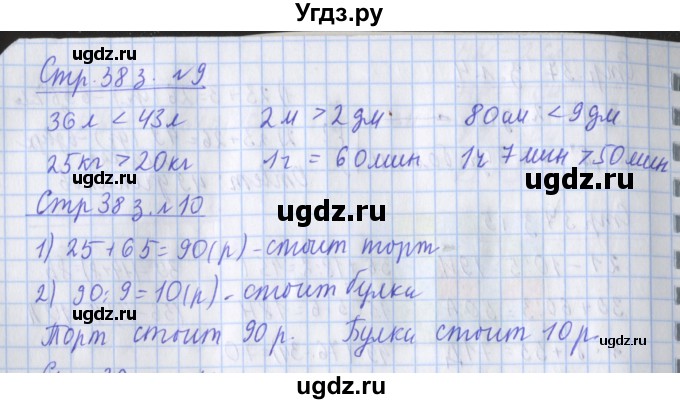 Угдз.ру
Стр. 38 з. №9
36л < 43л 2м > 2дм 80см < 9дм
25кг > 20кг 1ч = 60мин 1ч 7мин > 50мин
Стр 38 з. №10
1) 25+65=90(р)-стоит торт
2) 90:9=10(р)-стоит булка
Торт стоит 90р. Булка стоит 10р
ugdz.ru
ugdz.ru
ugdz.ru
ugdz.ru
ugdz.ru
ugdz.ru
ugdz.ru
ugdz.ru
ugdz.ru